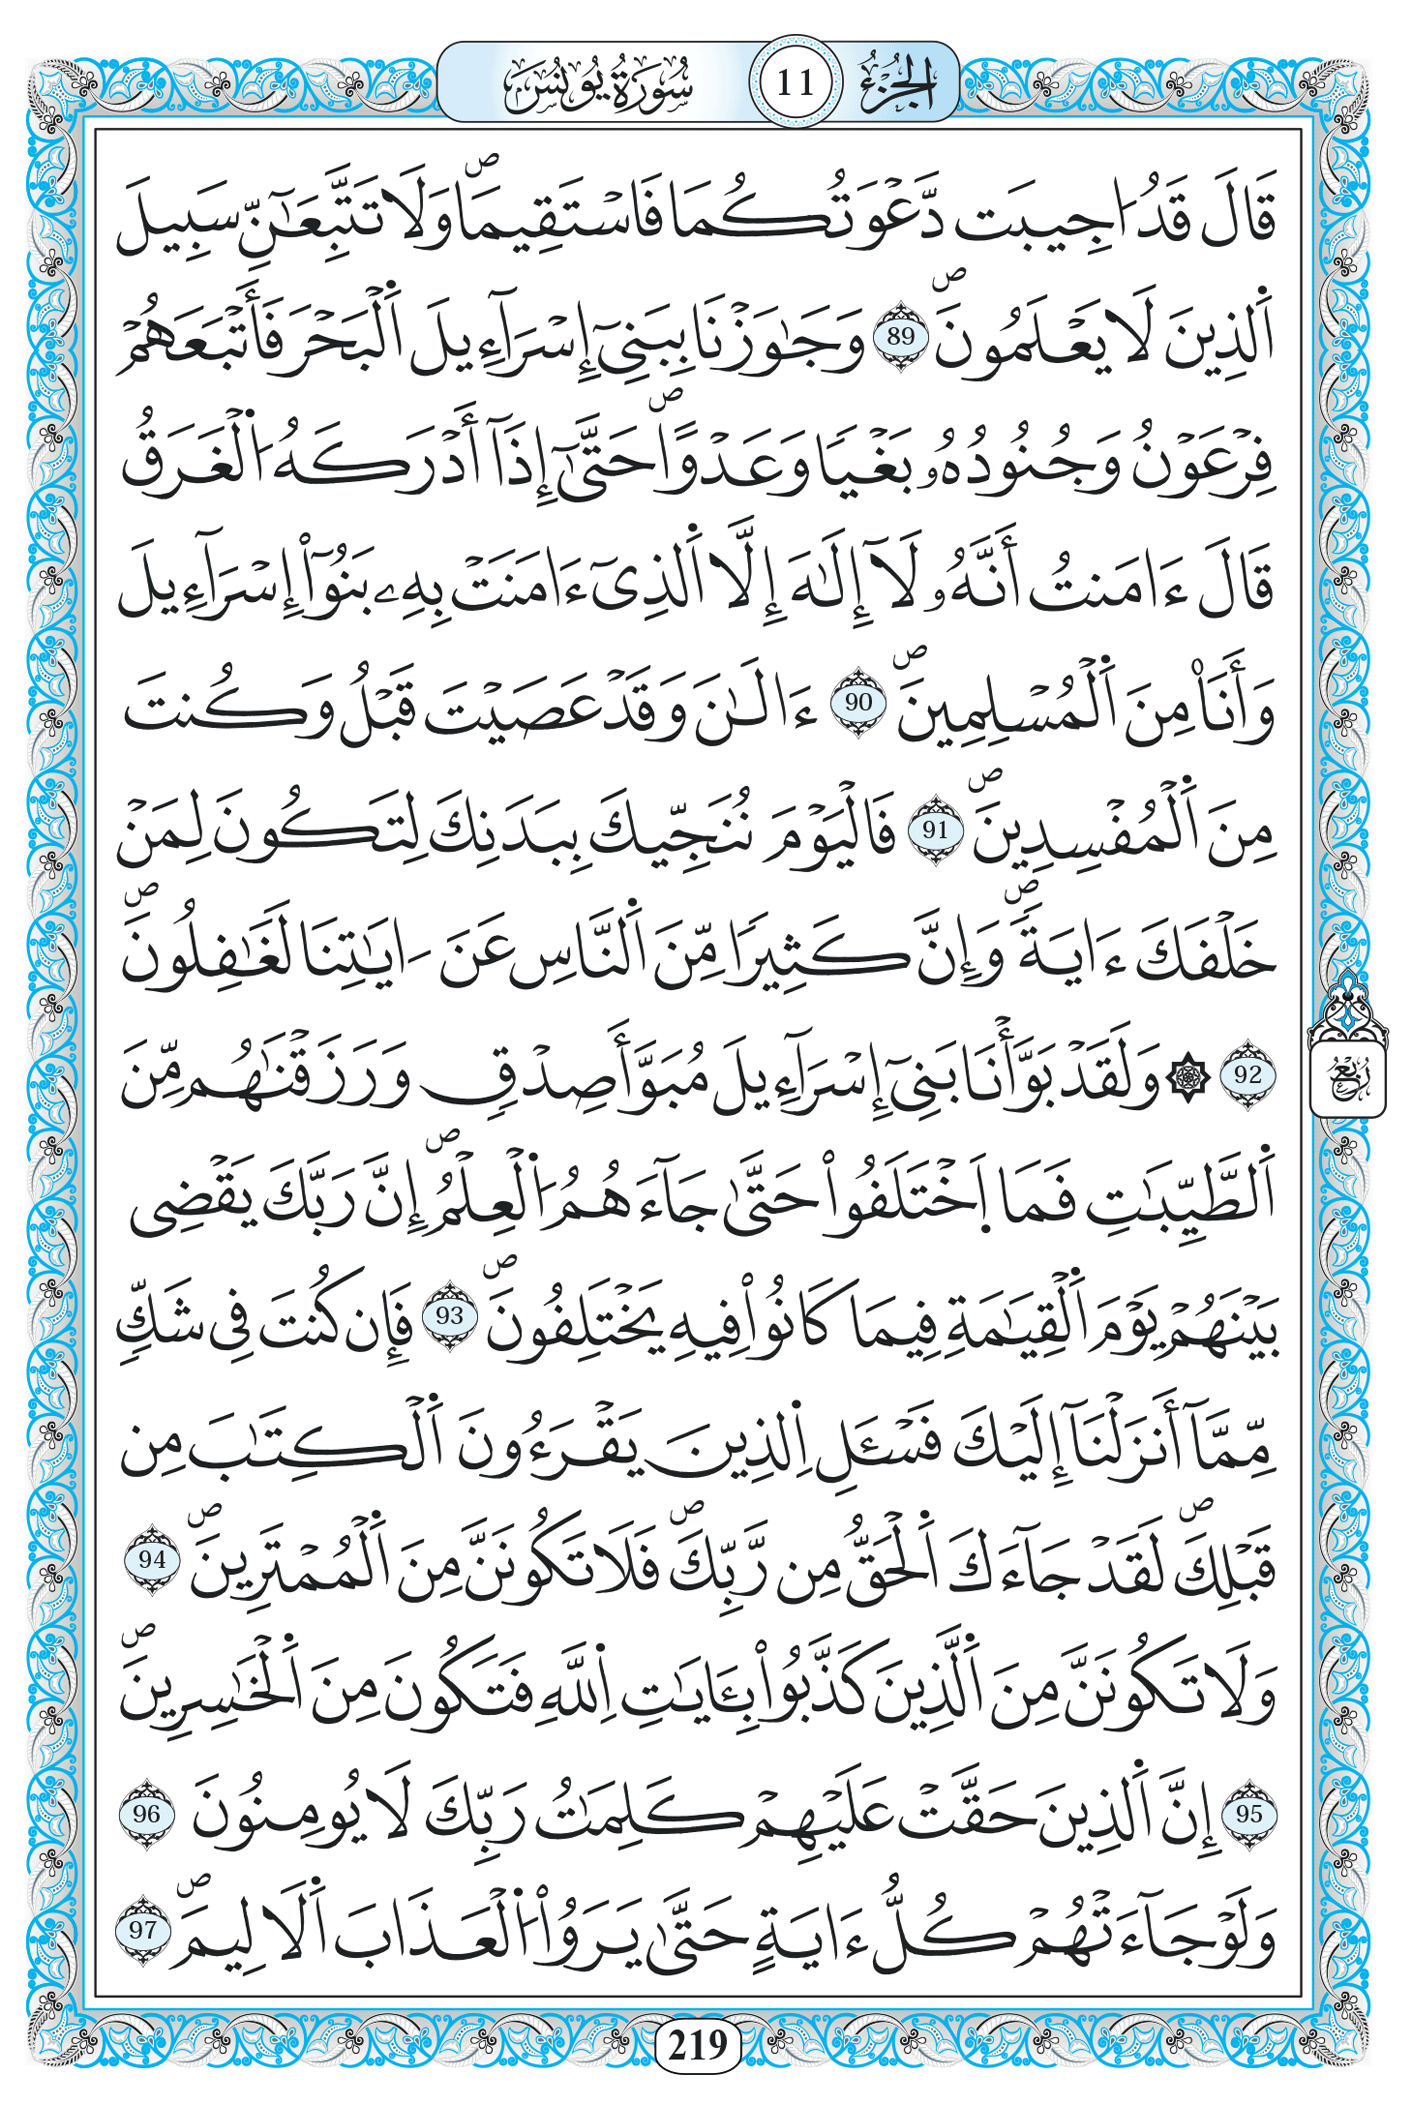 الجزء 11 سورة يونس
قَالَ قَدُ ا۟جِيبَت دَّعْوَتُكُمَا فَاسْتَقِيمَاۖ وَلَا تَتَّبِعَٰٓنِّ سَبِيلَ
اَ۬لذِينَ لَا يَعْلَمُونَۖ 89 وَجَٰوَزْنَا بِبَنِےٓ إِسْرَآءِيلَ اَ۬لْبَحْرَ فَأَتْبَعَهُمْ
فِرْعَوْنُ وَجُنُودُهُۥ بَغْياٗ وَعَدْواًۖ حَتَّىٰٓ إِذَآ أَدْرَكَهُ اُ۬لْغَرَقُ
قَالَ ءَامَنتُ أَنَّهُۥ لَآ إِلَٰهَ إِلَّا اَ۬لذِےٓ ءَامَنَتْ بِهِۦ بَنُوٓاْ إِسْرَآءِيلَ
وَأَنَا۠ مِنَ اَ۬لْمُسْلِمِينَۖ 90 ءَالَٰنَ وَقَدْ عَصَيْتَ قَبْلُ وَكُنتَ
مِنَ اَ۬لْمُفْسِدِينَۖ 91 فَالْيَوْمَ نُنَجِّيكَ بِبَدَنِكَ لِتَكُونَ لِمَنْ
خَلْفَكَ ءَايَةٗۖ وَإِنَّ كَثِيراٗ مِّنَ اَ۬لنَّاسِ عَنَ ا۟يَٰتِنَا لَغَٰفِلُونَۖ
92 ۞ وَلَقَدْ بَوَّأْنَا بَنِےٓ إِسْرَآءِيلَ مُبَوَّأَ صِدْقٖ وَرَزَقْنَٰهُم مِّنَ
اَ۬لطَّيِّبَٰتِ فَمَا اَ۪خْتَلَفُواْ حَتَّىٰ جَآءَهُمُ اُ۬لْعِلْمُۖ إِنَّ رَبَّكَ يَقْضِے
بَيْنَهُمْ يَوْمَ اَ۬لْقِيَٰمَةِ فِيمَا كَانُواْ فِيهِ يَخْتَلِفُونَۖ 93 فَإِن كُنتَ فِے شَكّٖ
مِّمَّآ أَنزَلْنَآ إِلَيْكَ فَسْـَٔلِ اِ۬لذِينَ يَقْرَءُونَ اَ۬لْكِتَٰبَ مِن
قَبْلِكَۖ لَقَدْ جَآءَكَ اَ۬لْحَقُّ مِن رَّبِّكَۖ فَلَا تَكُونَنَّ مِنَ اَ۬لْمُمْتَرِينَۖ 94
وَلَا تَكُونَنَّ مِنَ اَ۬لَّذِينَ كَذَّبُواْ بِـَٔايَٰتِ اِ۬للَّهِ فَتَكُونَ مِنَ اَ۬لْخَٰسِرِينَۖ
95 إِنَّ اَ۬لذِينَ حَقَّتْ عَلَيْهِمْ كَلِمَٰتُ رَبِّكَ لَا يُومِنُونَ 96
وَلَوْ جَآءَتْهُمْ كُلُّ ءَايَةٍ حَتَّىٰ يَرَوُاْ اُ۬لْعَذَابَ اَ۬لَالِيمَۖ 97
ربع
219